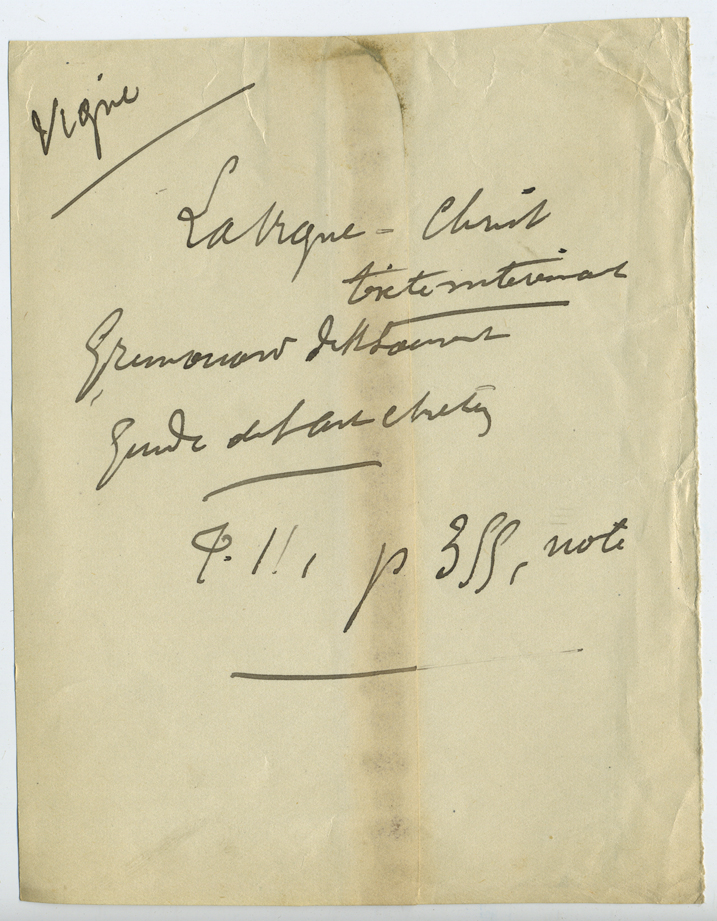 Vigne
La Vigne - Christ
texte intéressant
Grimouard de St Laurent
Guide de l'art chrétien
T. II, p 355, note